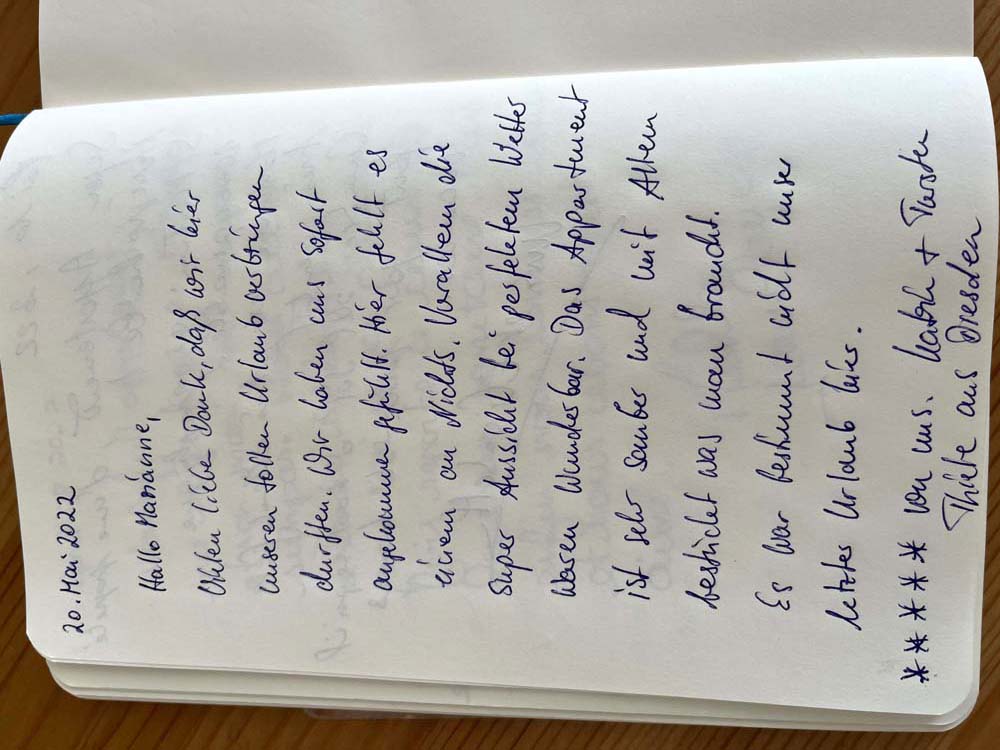 20. Mai 2022
Hallo Marianne,
Vielen liebe Dank, daß wir hier
unseren tollen Urlaub verbringen
durften. Wir haben uns sofort
angekommen gefühlt. Hier fehlt es
einem an Nichts. Vorallem die
Super Aussicht bei perfektem Wetter
waren Wunderbar. Das Appartement
ist sehr sauber und mit Allem
bestückt was man braucht.
Es war bestimmt nicht unser
letzter Urlaub hier.
***** von uns. Katrin + Torsten
Thiele aus Dresden